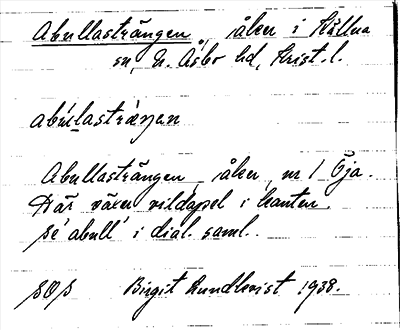 Abullasträngen, åker i Källna
sn, N. Åsbo hd, Krist. l.
abúlasträŋen
Abullasträngen, åker, nr 1 Öja.
Där växer vildapel i kanten.
se 'abull' i dial. saml.
Birgit Lundkvist 1938.